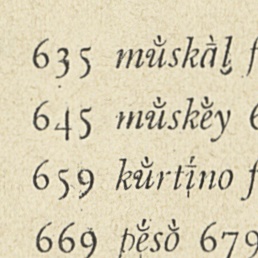 635 mů̀skàl̨ f
645 mů̀ske̊̀y 6
659 ků̀rtị́no f
669 pẹ́so̊̀ 679